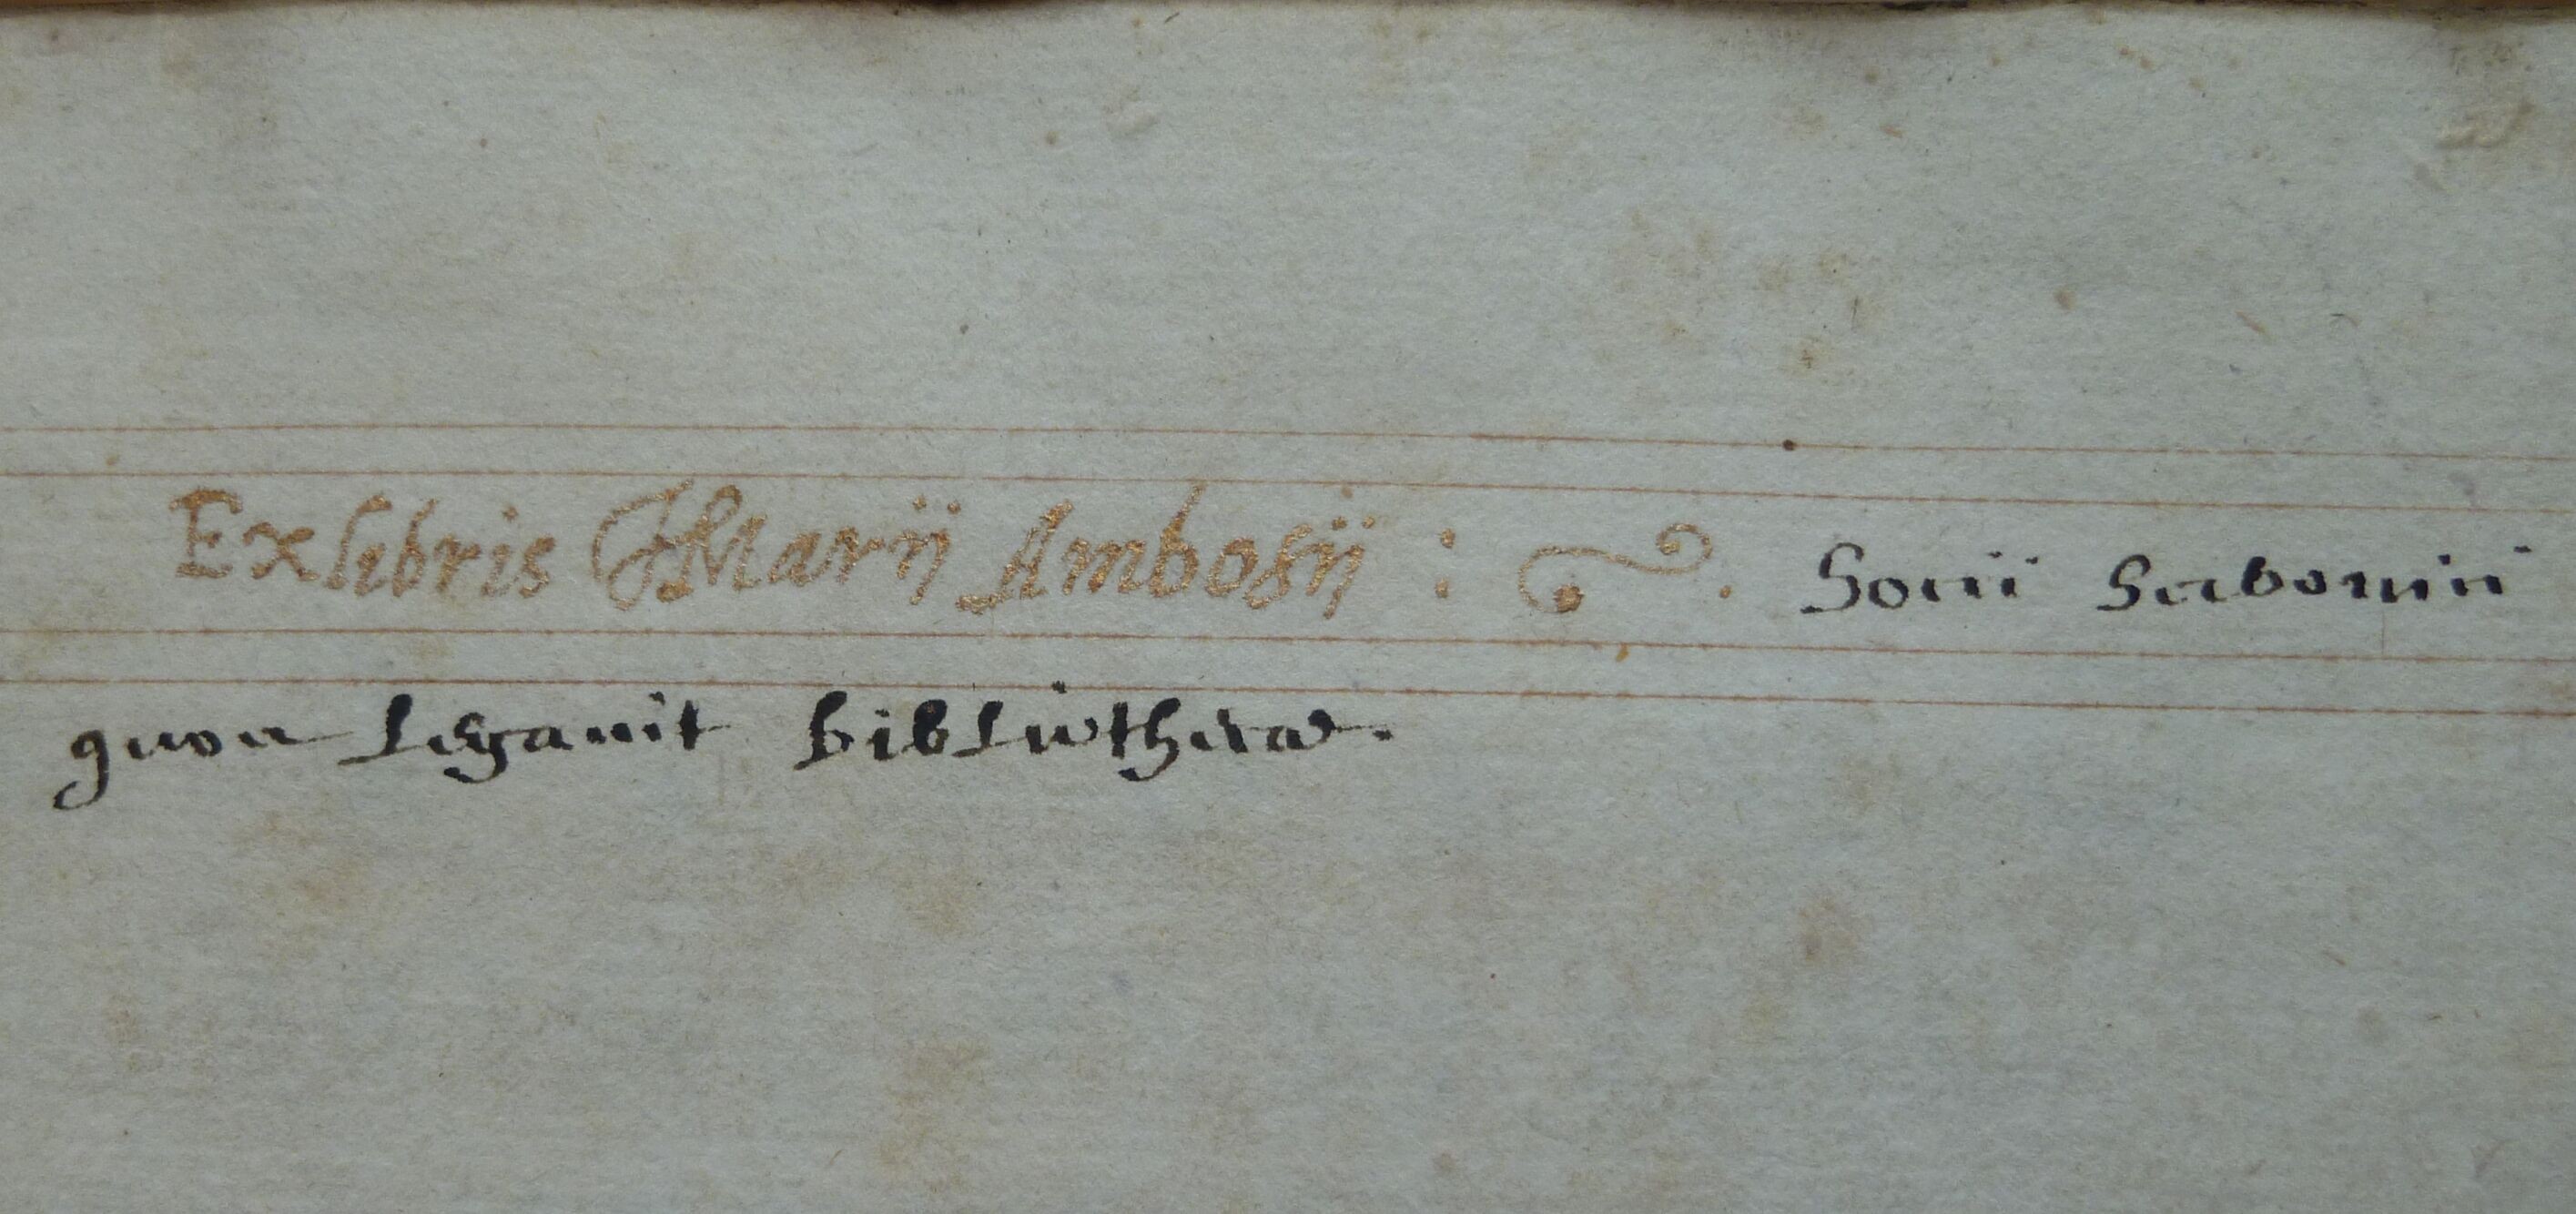 Ex libris Marij Ambosij : . Sorii Sabomii
quou legauit bibliothecae.